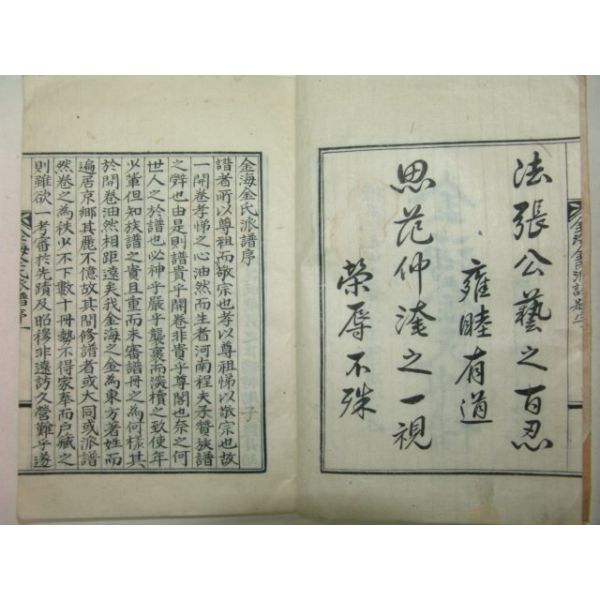 法張公藝之百忍
雍睦有道
思范仲淹之一視
榮辱不殊
金海金氏派譜序
譜者所以尊祖而敬宗也孝以尊祖悌以敬宗也故
一開卷孝悌之心油然而生者河南程夫子贊族譜
之辭也由是則譜貴乎開卷非貴乎尊閣也奈之何
世人之於譜也必神乎嚴乎襲裹而漢櫝之致使年
少輩但知族譜之貴且重而未審譜冊之為何樣其
於開卷油然相距遠矣我金海之金為東方著姓而
遍居京鄉其麗不億故其間修譜者或大同或派譜
然卷之為秩少不下數十冊勢不得家奉而戶藏之
則雖欲一考審於先蹟及昭穆非遠訪久營難乎遂